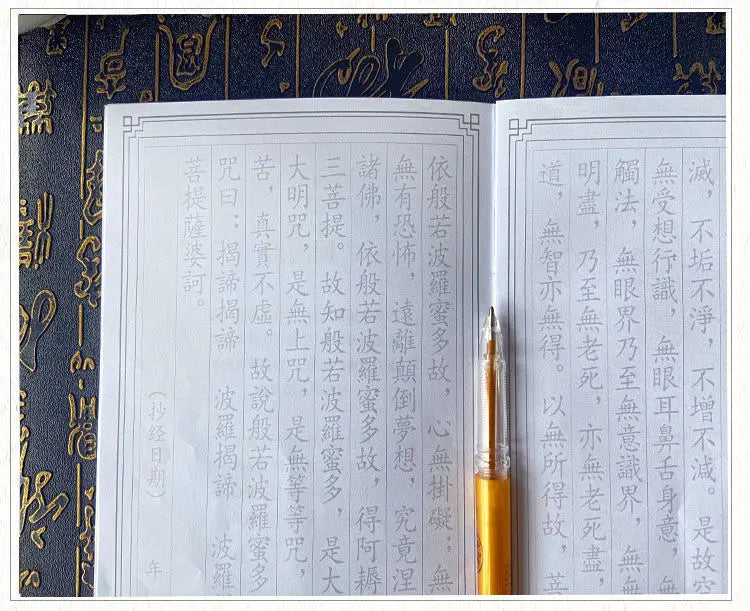 滅，不垢不淨，不增不減。是故空
無受想行識，無眼耳鼻舌身意，
觸法，無眼界乃至無意識界，無無
明盡，乃至無老死，亦無老死盡，
道，無智亦無得。以無所得故，菩
依般若波羅蜜多故，心無掛礙；無
無有恐怖，遠離顛倒夢想，究竟涅
諸佛，依般若波羅蜜多故，得阿耨
三菩提。故知般若波羅蜜多，是大
大明咒，是無上咒，是無等等咒，
苦，真實不虛。故說般若波羅蜜多
咒曰：揭諦揭諦 波羅揭諦 波羅
菩提薩婆訶。
（抄经日期） 年